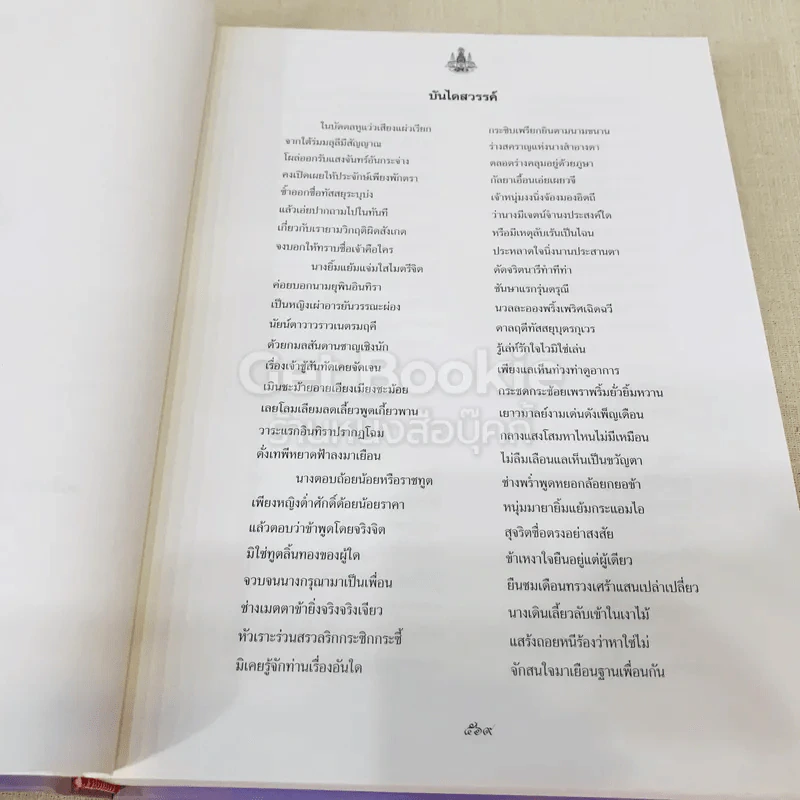 บันไดสวรรค์
ในบัดดลหูแว่วเสียงแผ่วเรียก
กระซิบเพรียกยินตามนามขนาน
จากใต้ร่มมลุลีมีสัญญาณ
ร่างสคราญแห่งนางสำอางตา
โผล่ออกรับแสงจันทร์อันกระจ่าง
ตลอดร่างคลุมอยู่ด้วยภูษา
คงเปิดเผยให้ประจักษ์เพียงพักตรา
กัลยาเอื้อนเอ่ยเผยวจี
ซ้ำออกชื่อทัสสยุระบุบ่ง
เจ้าหนุ่มงงนิ่งจ้องมองอิตถี
แล้วเอ่ยปากถามไปในทันที
ว่านางมีเจตน์จำนงประสงค์ใด
เกี่ยวกับเรายามวิกฤติผิดสังเกต
หรือมีเหตุลับเร้นเป็นไฉน
จงบอกให้ทราบชื่อเจ้าคือใคร
ประหลาดใจนิ่งนานประสานตา
นางยิ้มแย้มแจ่มใสไมตรีจิต
ดัดจริตนารีทำทีท่า
ค่อยบอกนามยุพินอินทิรา
ชันษาแรกรุ่นดรุณี
เป็นหญิงเผ่าอารยันวรรณะผ่อง
นวลละอองพริ้งเพริศเฉิดฉวี
นัยน์ตาวาวราวเนตรมฤคี
ดาลฤดีทัสสยุบุตรกุเวร
ด้วยกมลสันดานชาญเชิงนัก
รู้เล่ห์รักใจไวมิใช่เล่น
เรื่องเจ้าชู้สันทัดเคยจัดเจน
เพียงแลเห็นท่วงท่าดูอาการ
เมินชะม้ายอายเอียงเมียงชะม้อย
กระชดกระช้อยเพราพริ้มยั่วยิ้มหวาน
เลยโลมเลียมลดเลี้ยวพูดเกี้ยวพาน
เยาวมาลย์งามเด่นดังเพ็ญเดือน
วาระแรกอินทิราปรากฏโฉม
กลางแสงโสมหาไหนไม่มีเหมือน
ดั่งเทพีหยาดฟ้าลงมาเยือน
ไม่ลืมเลือนแลเห็นเป็นขวัญตา
นางตอบถ้อยน้อยหรือราชทูต
ช่างพร่ำพูดหยอกล้อยกยอข้า
เพียงหญิงต่ำศักดิ์ด้อยน้อยราคา
หนุ่มมายายิ้มแย้มกระแอมไอ
แล้วตอบว่าข้าพูดโดยจริงจิต
สุจริตซื่อตรงอย่าสงสัย
มิใช่ทูตลิ้นทองของผู้ใด
ข้าเหงาใจยืนอยู่แต่ผู้เดียว
จวบจนนางกรุณามาเป็นเพื่อน
ยืนชมเดือนทรวงเศร้าแสนเปล่าเปลี่ยว
ช่างเมตตาข้ายิ่งจริงจริงเจียว
นางเดินเลี้ยวลับเข้าในเงาไม้
หัวเราะร่วนสรวลริกกระซิกกระซี้
แสร้งถอยหนีร้องว่าหาใช่ไม่
มิเคยรู้จักท่านเรื่องอันใด
จักสนใจมาเยือนฐานเพื่อนกัน
๕๖๙
Get Bookie
ร้านหนังสือบุ๊คกี้